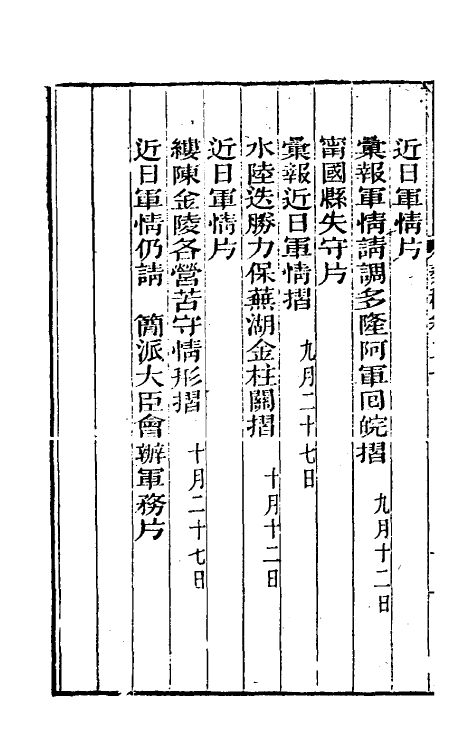 近日軍情片
彚報軍情請調多隆阿軍囘皖摺 九月十二日
甯國縣失守片
彚報近日軍情摺 九月二十七日
水陸迭勝力保蕪湖金柱關摺 十月十二日
近日軍情片
縷陳金陵各營苦守情形摺 十月二十七日
近日軍情仍請 簡派大臣會辦軍務片